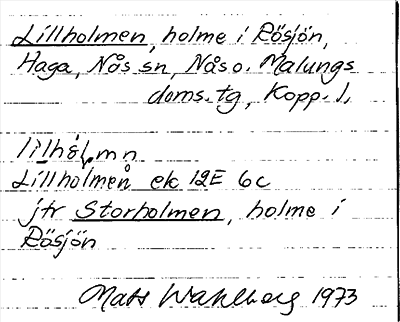 Lillholmen, holme i Rösjön,
Haga, Nås sn, Nås o. Malungs
doms. tg, Kopp. l.
lilhål,mn
Lillholmen ek 12E 6c
jfr Storholmen, holme i
Rösjön
Mats Wahlberg 1973